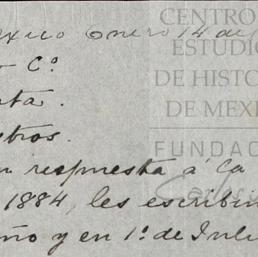 México Enero 14 de
y Cº
nta.
stros.
n respuesta á la
1884, les escribim
ño y en 1º de Juli
CENTRO
ESTUDI
DE HISTO
DE MEXI
FUNDAC
Carlos